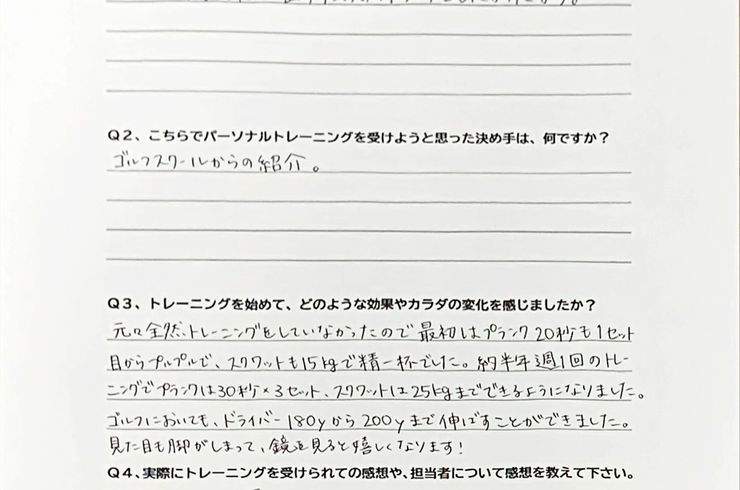 Q2、こちらでパーソナルトレーニングを受けようと思った決め手は、何ですか？
ゴルフスクールからの紹介。
Q3、トレーニングを始めて、どのような効果やカラダの変化を感じましたか？
元々全然、トレーニングをしていなかったので最初はプランク20秒も1セット
目からプルプルで、スクワットも15kgで精一杯でした。約半年週1回のトレー
ニングでプランクは30秒×3セット、スクワットは25kgまでできるようになりました。
ゴルフにおいても、ドライバー180yから200yまで伸ばすことができました。
見た目も脚がしまって、鏡を見ると嬉しくなります！
Q4、実際にトレーニングを受けられての感想や、担当者について感想を教えて下さい。